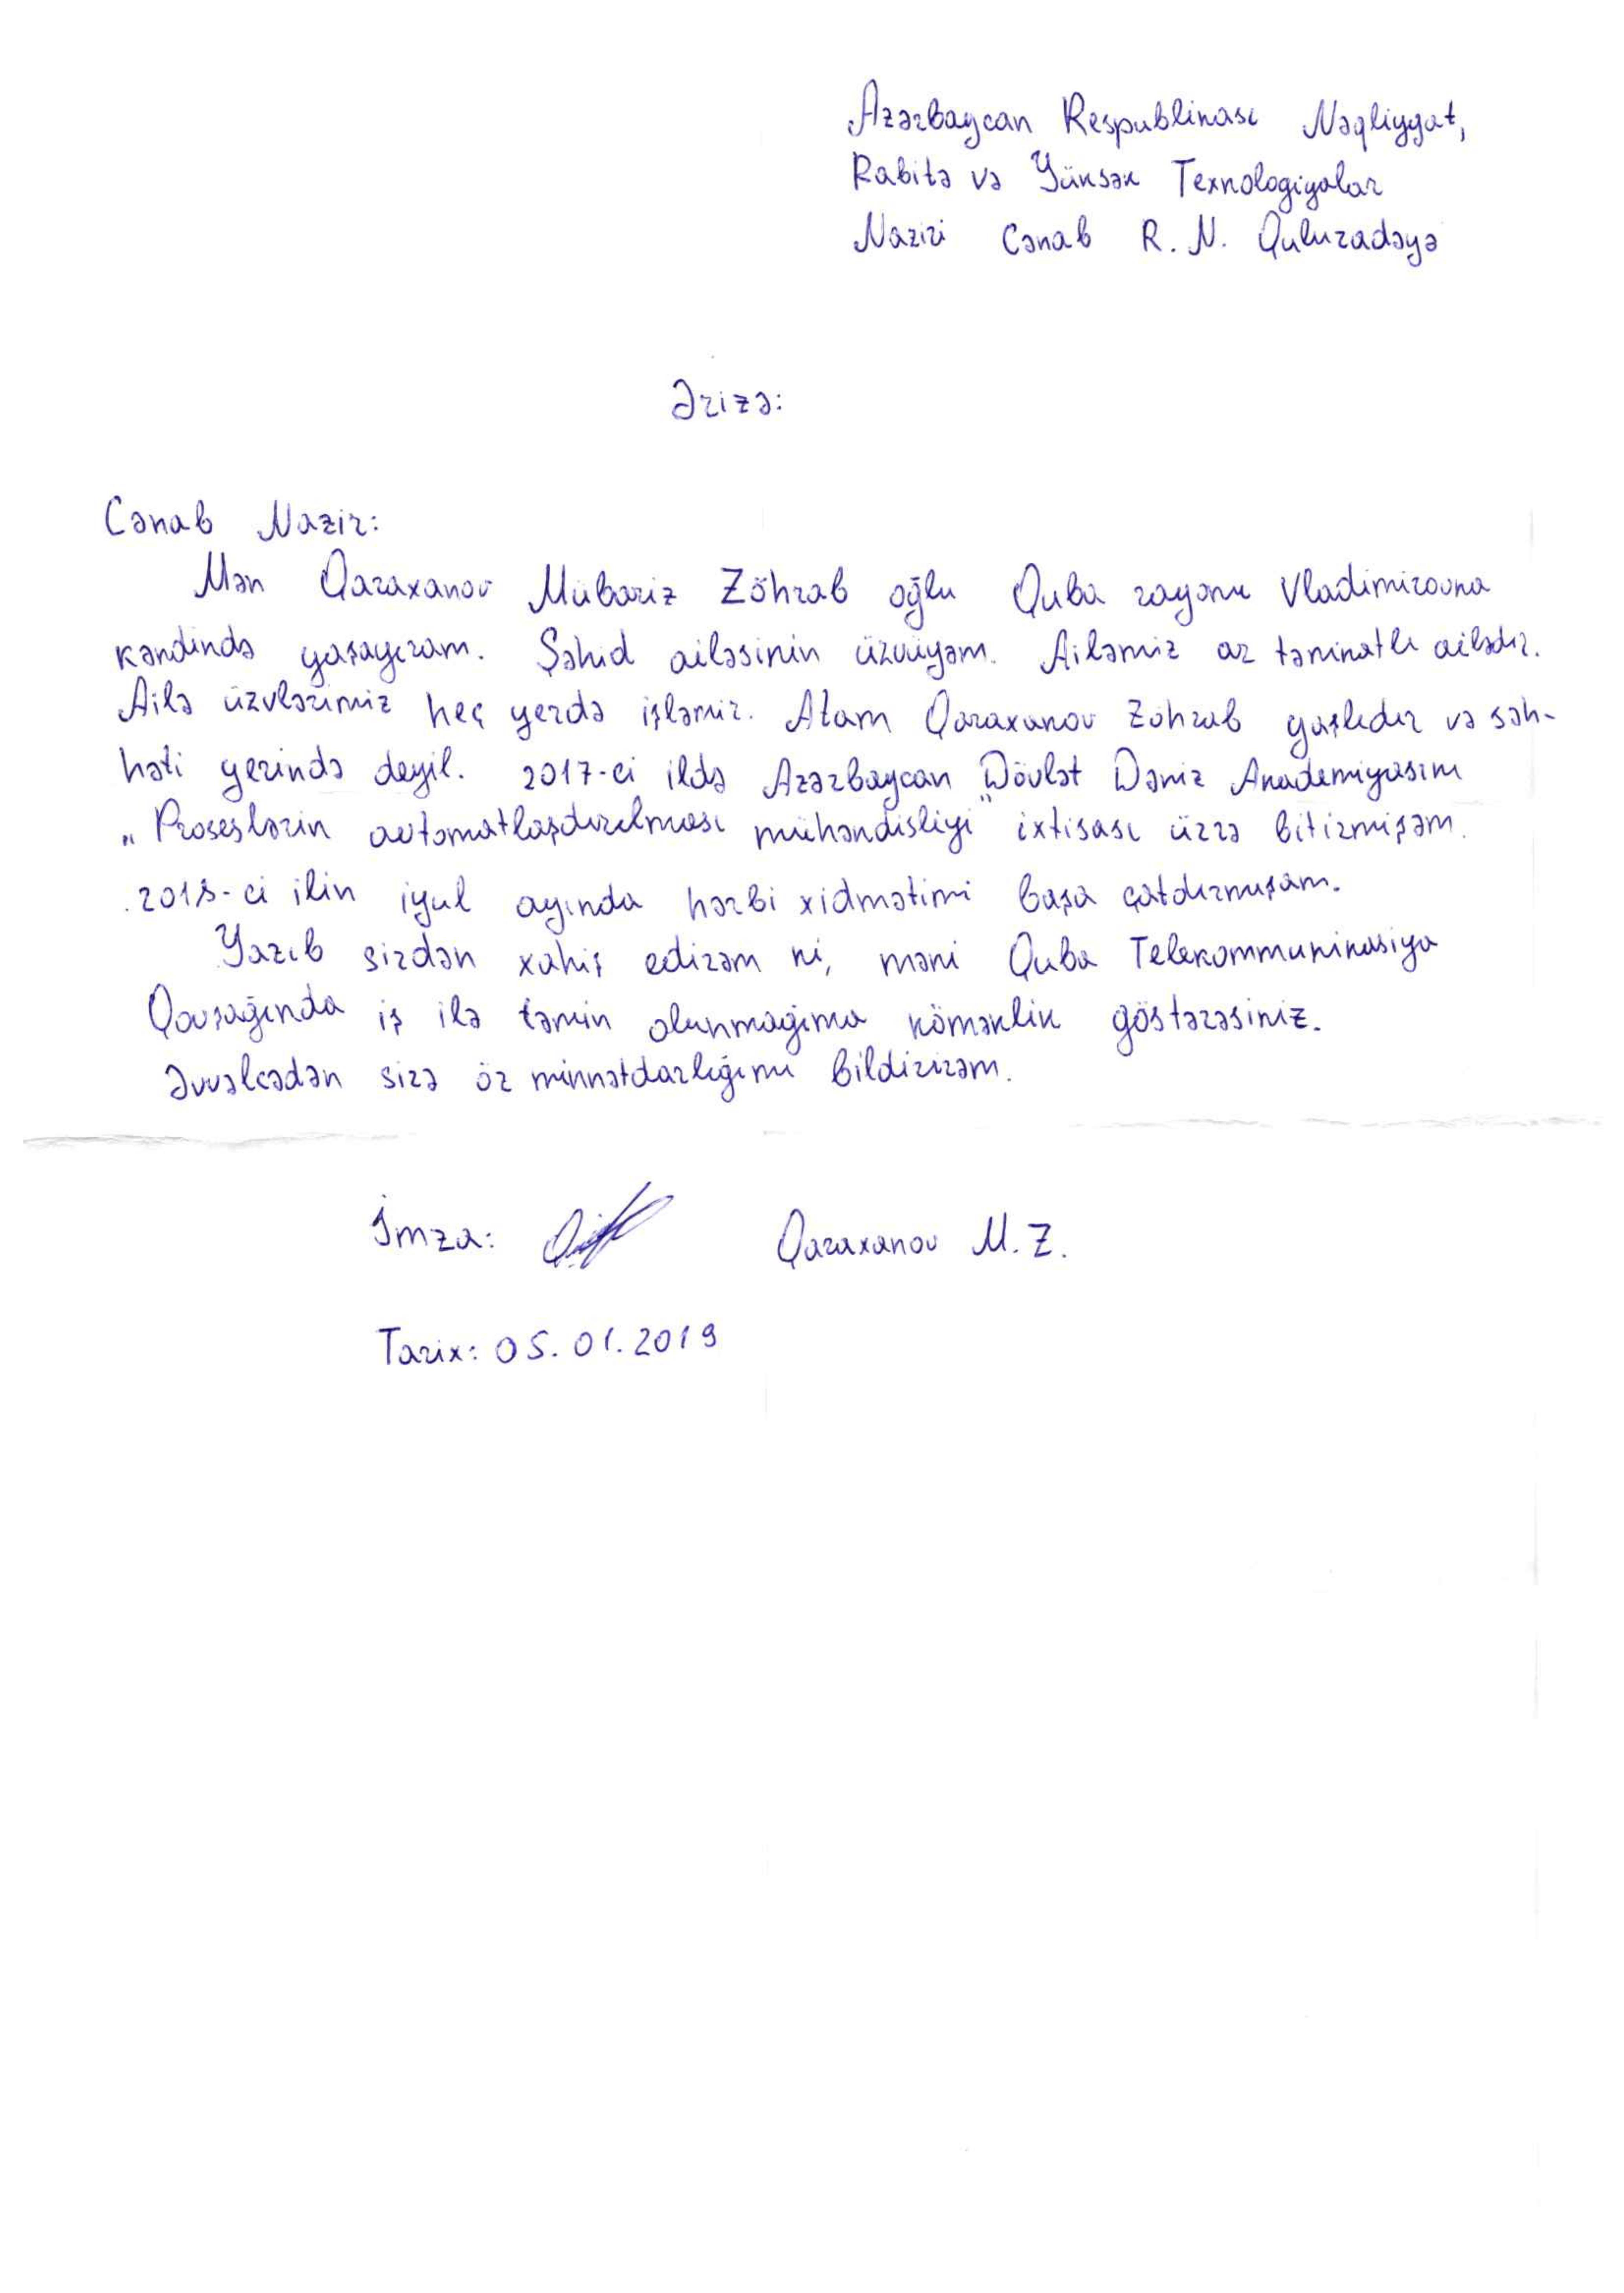 Azərbaycan Respublikası Nəqliyyat,
Rabitə və Yüksək Texnologiyalar
Naziri Cənab R. N. Quluzadəyə
Ərizə:
Cənab Nazir:
Mən Qaraxanov Mübariz Zöhrab oğlu Quba rayonu Vladimirovna
kəndində yaşayıram. Şəhid ailəsinin üzvüyəm. Ailəmiz az təminatlı ailədir.
Ailə üzvlərimiz heç yerdə işləmir. Atam Qaraxanov Zöhrab yaşlıdır və səh-
həti yerində deyil. 2017-ci ildə Azərbaycan Dövlət Dəniz Akademiyasını
„Proseslərin avtomatlaşdırılması mühəndisliyi" ixtisası üzrə bitirmişəm.
2018-ci ilin iyul ayında hərbi xidmətimi başa çatdırmışam.
Yazıb sizdən xahiş edirəm ki, məni Quba Telekommunikasiya
Qovşağında iş ilə təmin olunmağıma köməklik göstərəsiniz.
Əvvəlcədən sizə öz minnətdarlığımı bildirirəm.
İmza: Qaraxanov M. Z.
Tarix: 05.01.2019